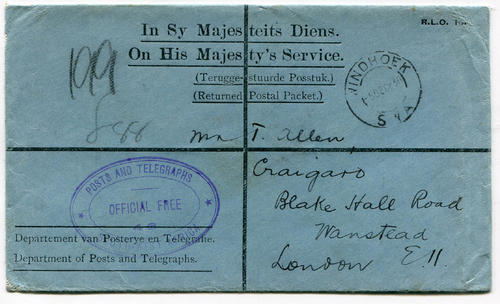 R.L.O.
In Sy Majesteits Diens.
On His Majesty's Service.
(Terugge-stuurde Posstuk.)
(Returned Postal Packet.)
199
WINDHOEK
S W A
Mr T. Allen,
Craigard
Blake Hall Road
Wanstead
London E.11.
POSTS AND TELEGRAPHS
OFFICIAL FREE
Departement van Posterye en Telegrafie.
Department of Posts and Telegraphs.